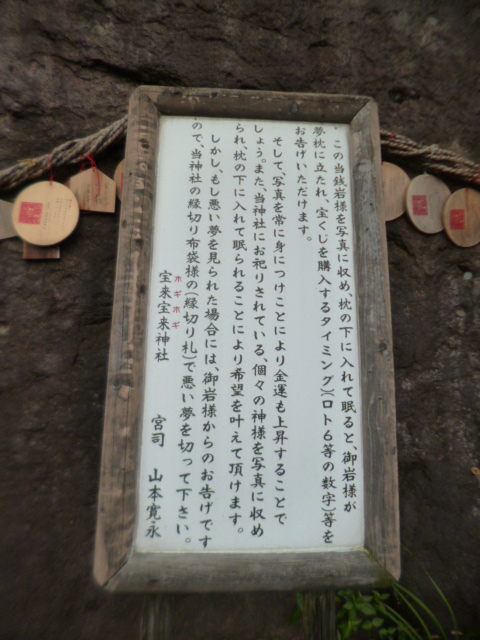 この当銭岩様を写真に収め、枕の下に入れて眠ると、御岩様が
夢枕に立たれ、宝くじを購入するタイミング(ロト6等の数字)等を
お告げいただけます。
そして、写真を常に身につけことにより金運も上昇することで
しょう。また、当神社にお祀りされている、個々の神様を写真に収め
られ、枕の下に入れて眠られることにより希望を叶えて頂けます。
しかし、もし悪い夢を見られた場合には、御岩様からのお告げです
ので、当神社の縁切り布袋様の(縁切り札)で悪い夢を切って下さい。
ホギホギ
宝来宝来神社
宮司 山本寛永